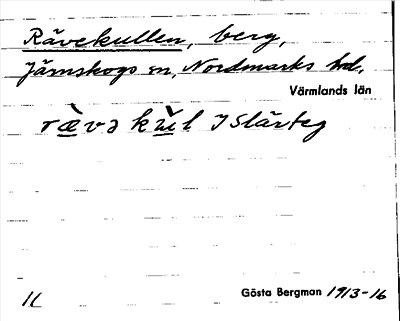 Rävekullen, berg,
Järnskogs sn, Nordmarks hd,
Värmlands län
ræ̀və kùl I Slärteg
Gösta Bergman 1913-16